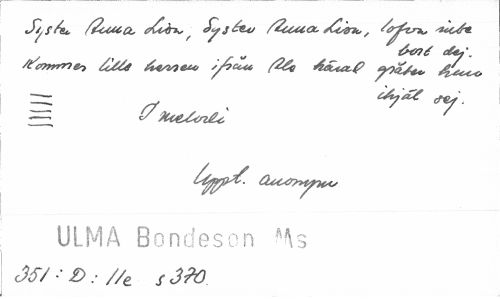 Syster Anna Lisa, Syster Anna Lisa, lofva inte
bort dej.
Kommer lille herren ifrån Ala häral gråter hun
ihjäl sej.
1 melodi
Uppt. anonym
ULMA Bondeson Ms
351 : D : 11e s 370.